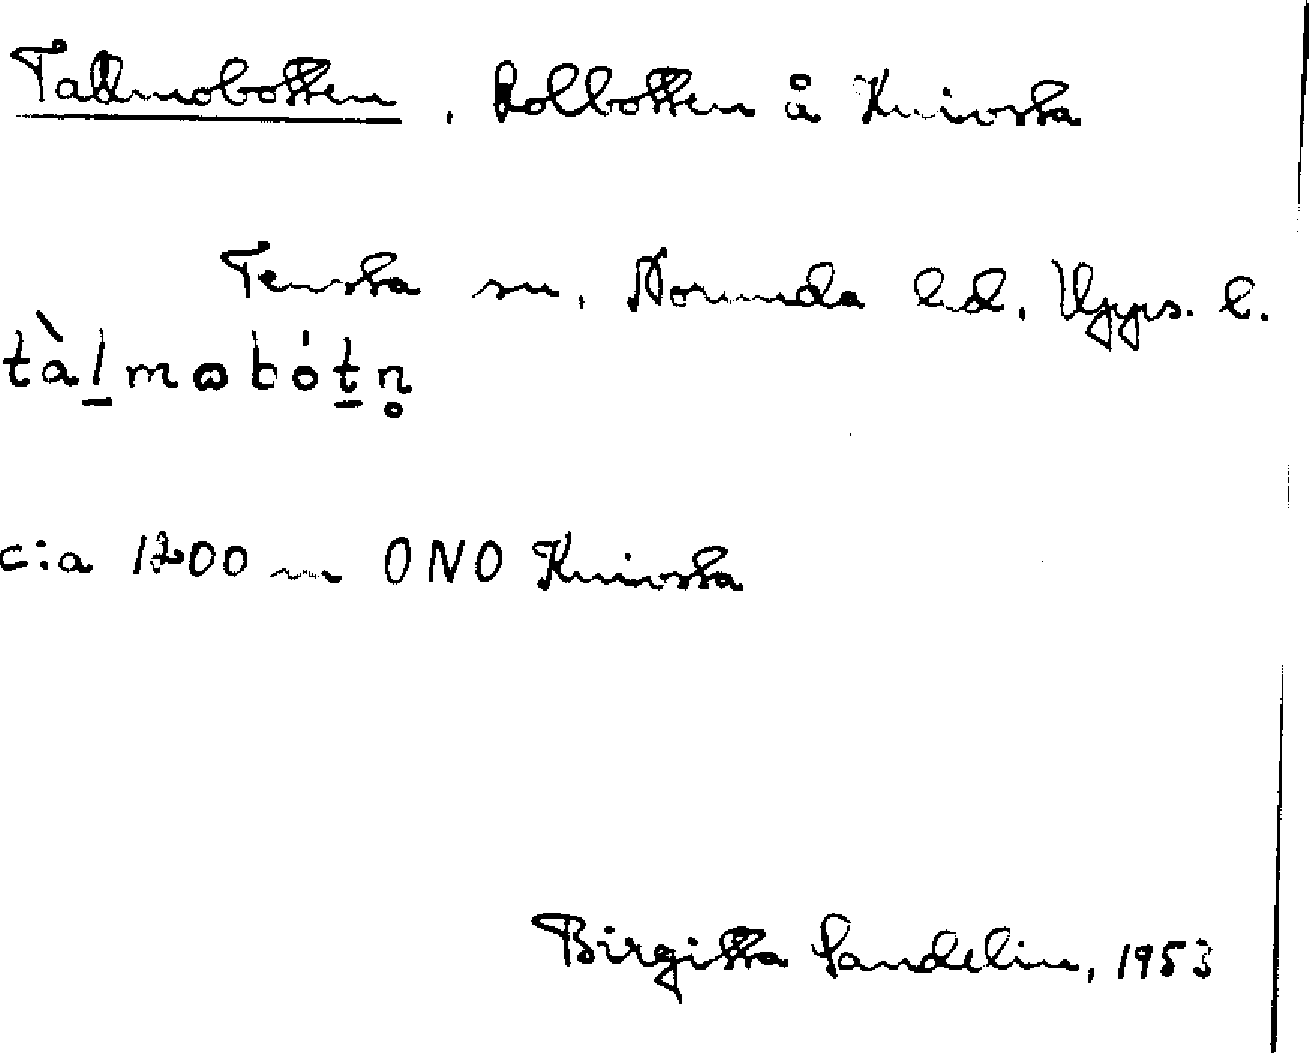 Tallmobotten, kolbotten å Knivsta
Tensta sn, Norunda hd, Upps. l.
tàl̠mɷbót̠n̥
c:a 1200 m ONO Knivsta
Birgitta Sandelin, 1953